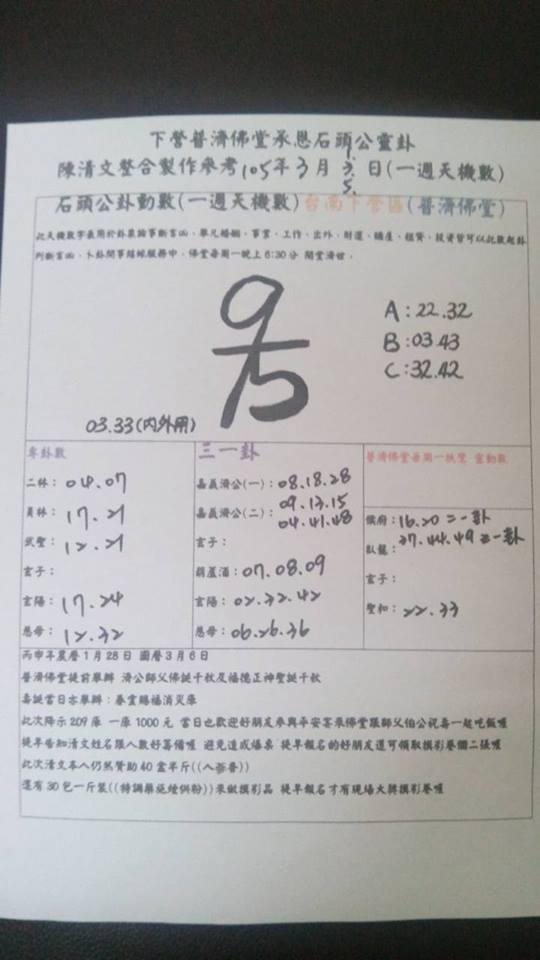 下營普濟佛堂承恩石頭公靈卦
陳清文整合製作參考105年3月1.3.5.日(一週天機數)
石頭公卦動數(一週天機數)台南下營區(普濟佛堂)
此天機數字表用於卦象論事斷吉凶、舉凡婚姻、事業、工作、出外、財運、購產、租賃、投資皆可以此數起卦
判斷吉凶、卜卦問事結緣服務中、佛堂每周一晚上6:30分 開堂濟世。
A:22.32
B:03.43
C:32.42
03.33(內外用)
專卦數
二林:04.07
員林:17.21
武聖:12.21
玄子:
玄陽:17.24
慈母:12.32
三一卦
嘉義濟公(一):08.18.28
09.13.15
嘉義濟公(二):04.41.48
玄子:
葫蘆酒:07.08.09
玄陽:02.32.42
慈母:06.26.36
普濟佛堂每周一扶鸞 靈動數
侯府:16.20=一卦
臥龍:27.44.49=一卦
玄子:
聖和:22.33
丙申年農曆1月28日 國曆3月6日
普濟佛堂提前舉辦 濟公師父佛誕千秋及福德正神聖誕千秋
嘉誕當日亦舉辦:奉靈賜福消災庫
此次降示209庫 一庫1000元 當日也歡迎好朋友參與平安宴來佛堂跟師父伯公祝壽一起吃飯喔
提早告知清文姓名跟人數好籌備喔 避免造成爆桌 提早報名的好朋友還可領取摸彩卷個二張喔
此次清文本人仍然贊助40盒半斤((人蔘香))
還有30包一斤裝((特調藥施煙供粉))來做摸彩品 提早報名才有現場大牌摸彩卷喔